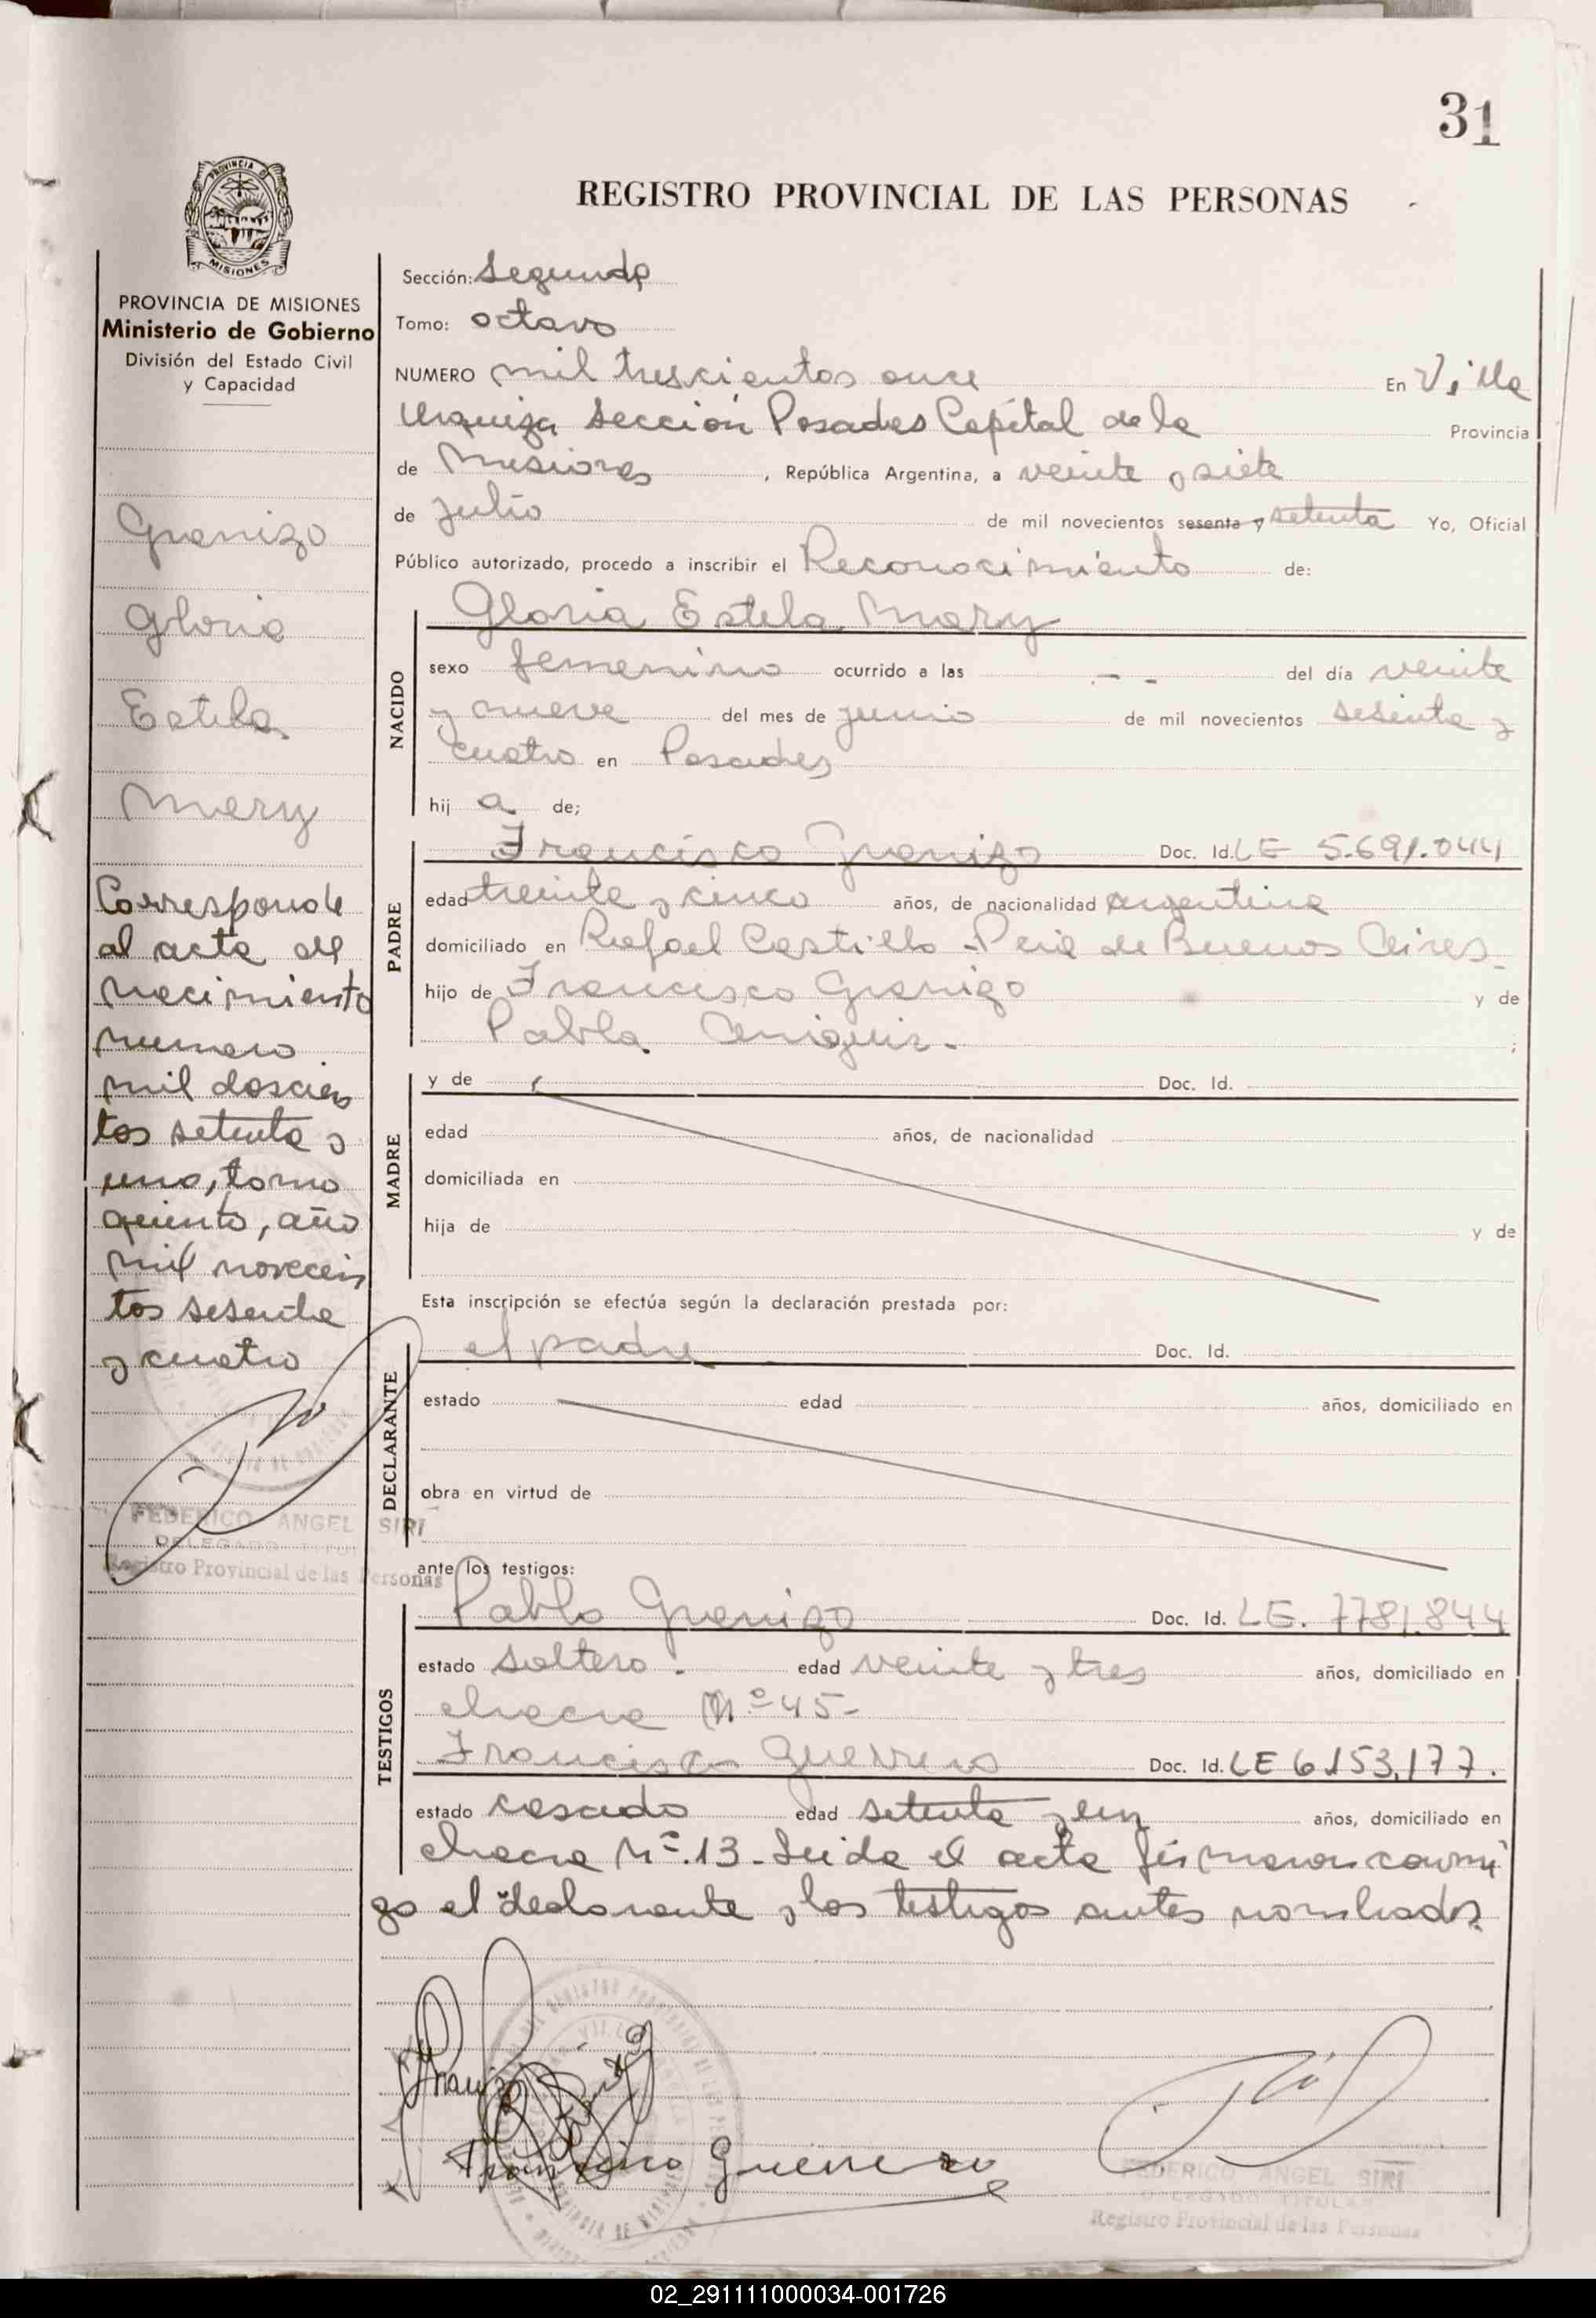 31
REGISTRO PROVINCIAL DE LAS PERSONAS
PROVINCIA DE MISIONES
Ministerio de Gobierno
División del Estado Civil
y Capacidad
Granizo
Gloria
Estela
Mary
Corresponde
al acta del
nacimiento
numero
mil doscien
tos setenta y
uno, tomo
quinto, año
mil novecien
tos sesenta
y cuatro
FEDERICO ANGEL SIRI
DELEGADO TITULAR
Registro Provincial de las Personas
Sección: Segunda
Tomo: octavo
NUMERO mil trescientos once En Villa
Urquiza Sección Posadas Capital de la Provincia
de Misiones, República Argentina, a veinte y siete
de julio de mil novecientos sesenta y setenta Yo, Oficial
Público autorizado, procedo a inscribir el Reconocimiento de:
NACIDO
Gloria Estela Mary
sexo femenino ocurrido a las - - del día veinte
y nueve del mes de junio de mil novecientos sesenta y
cuatro en Posadas
hij a de;
PADRE
Francisco Granizo Doc. Id. LE 5.691.044
edad treinta y cinco años, de nacionalidad argentina
domiciliado en Rafael Castillo - Pcia de Buenos Aires -
hijo de Francisco Granizo y de
Pabla ;
MADRE
y de Doc. Id.
edad años, de nacionalidad
domiciliada en
hija de y de
Esta inscripción se efectúa según la declaración prestada por:
DECLARANTE
el padre Doc. Id.
estado edad años, domiciliado en
obra en virtud de
ante los testigos:
TESTIGOS
Pablo Granizo Doc. Id. LE. 7781.844
estado soltero. edad veinte y tres años, domiciliado en
chacra Nº 45-
Francisco Guerrero Doc. Id. LE 6.153.177.
estado casado edad setenta y un años, domiciliado en
chacra Nº 13 - Leida el acta firmaron conmi
go el declarante y los testigos antes nombrados
Francisco Guerrero
FEDERICO ANGEL SIRI
DELEGADO TITULAR
Registro Provincial de las Personas
02_291111000034-001726